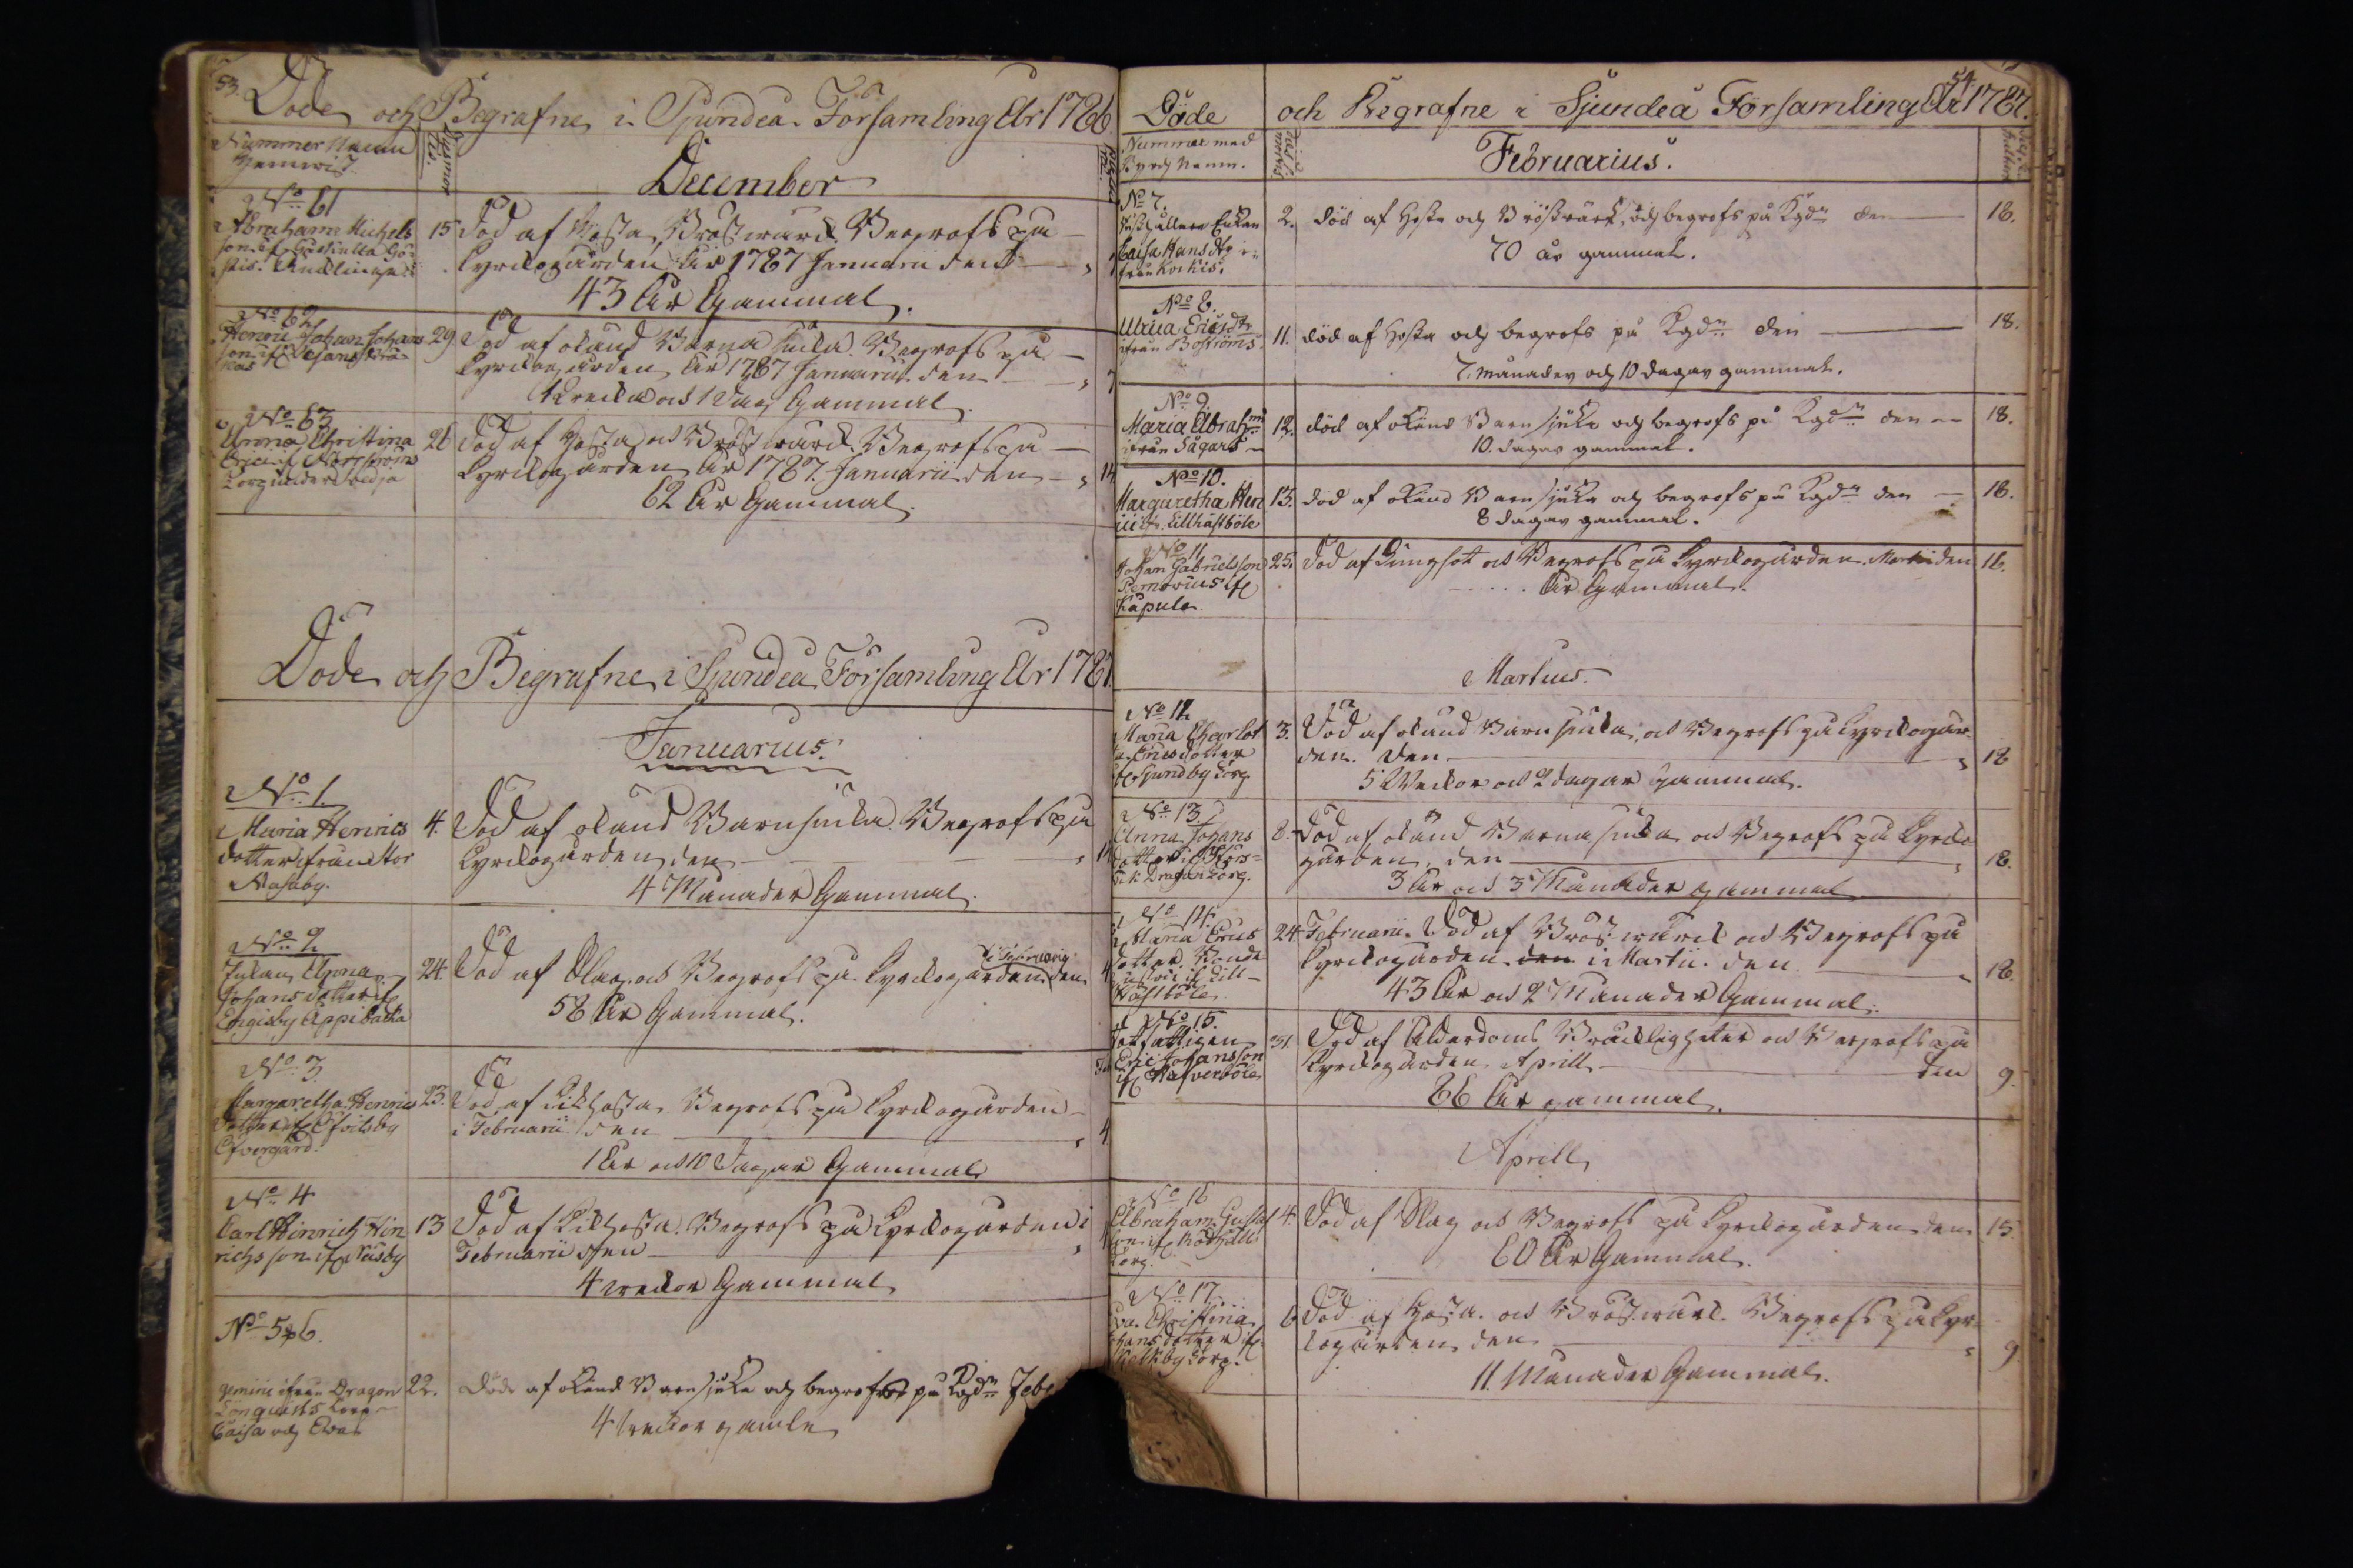 53.
Döde och Begrafne i Sjundeå Församling År 1786
Nummer Namn
Hemwist
December
No 61
Abraham Michels
son
15 Död af Hosta, Bröstwärk. Begrofs på
Kyrkogården År 1787 Januarii den
43 År Gammal.
No 62
Henric Johan Johans
son
29 Död af okänd Barna siuka. Begrofs på
Kyrkogården År 1787 Januarii den 7
1 wecka och 1 Dag Gammal
No 63
Anna Christina
Erici
26 Död af Hosta och Bröstwärk. Begrofs på
Kyrkogården År 1787. Januarii den 14
62 År Gammal.
Döde och Begrafne i Sjundeå Församling År 1787
Januarius.
No 1.
Maria Henrics
dotter ifrån Stor
Nasaby.
4. Död af okänd Barnsiuka. Begrofs på
Kyrkogården den 14
4 Månader Gammal.
No 2
Enkan Anna
Johans dotter if
Engisby Appibacka
24. Död af Slag och Begrofs på Kyrkogården i Februarii den 4
58 År Gammal.
No 3
Margaretha Henrics
dotter if Ofvitsby
Öfvergård.
23. Död af Kikhosta Begrofs på Kyrkogården
i Februarii den 4
1 År och 10 Dagar Gammal
No 4
Carl Hinrich Hin
richs son if Näsby
13 Död af Kikhosta. Begrofs på Kyrkogården i
Februarii den
4 weckor Gammal
No 5 & 6.
gemini ifrån Dragon
Lönquists Torp
Caisa och Eva
22. Döde af okänd Barnsjuka och begrofs på Kgdn Feb
4 weckor gamle
54
Döde och Begrafne i Sjundeå Församling År 1787.
Nummer med
Namn.
Februarius.
No 7.
Enkan
Caisa Hans dtr i
från Korkis.
2. död af Hosta och Bröstwärk, och begrofs på Kgdn den 18.
70 år gammal.
No 8.
Ulrica Ericsdtr
ifrån Boströms.
11. död af Hosta och begrofs på Kgdn den 18.
7. månader och 10 dagar gammal.
No 9.
Maria Abrahms
ifrån Sågars
12. död af okänd Barnsjuka och begrofs på Kgdn den 18.
10. dagar gammal.
No 10.
Margaretha Hen
Lillhästböle
13. död af okänd Barnsjuka och begrofs på Kgdn den 18.
8 dagar gammal.
No 11
Johan Gabrielsson
Pernovius if
Kapula
25. Död af Lungsot och Begrofs på Kyrkogården Martii den 16.
År Gammal.
Martius.
No 12
Maria Charlot
ta Erics dotter
if Sjundby Torp.
3. Död af okänd Barnsiuka, och Begrofs på Kyrkogår
den. Den 18
5 Weckor och 2 dagar Gammal.
No 13
Anna Johans
dotter
Dragon Torp.
8. Död af okänd Barnasiuka och Begrofs på Kyrko
gården, den 18.
3 År och 3 Månader gammal
No 14
Maria Erics
dotter
if Lill
Hästböle
24 Februarii. Död af Bröstwärk och Begrofs på
Kyrkogården den i Martii. den 18.
43 År och 2 Månader Gammal.
No 15.
Fattigen
Eric Johansson
if Hafverböle
31. Död af Ålderdoms Bräckligheter och Begrofs på
Kyrkogården Aprill den 9.
86 År gammal.
Aprill
No 16
Abraham Gustaf
son if
Torp.
4. Död af Slag och Begrofs på Kyrkogården den 15
60 År Gammal.
No 17.
Eva Christina
Johans dotter if
Kalkby Torp.
6 Död af Hosta och Bröstwärk. Begrofs på Kyr
kogården den 9
11. Månader Gammal.